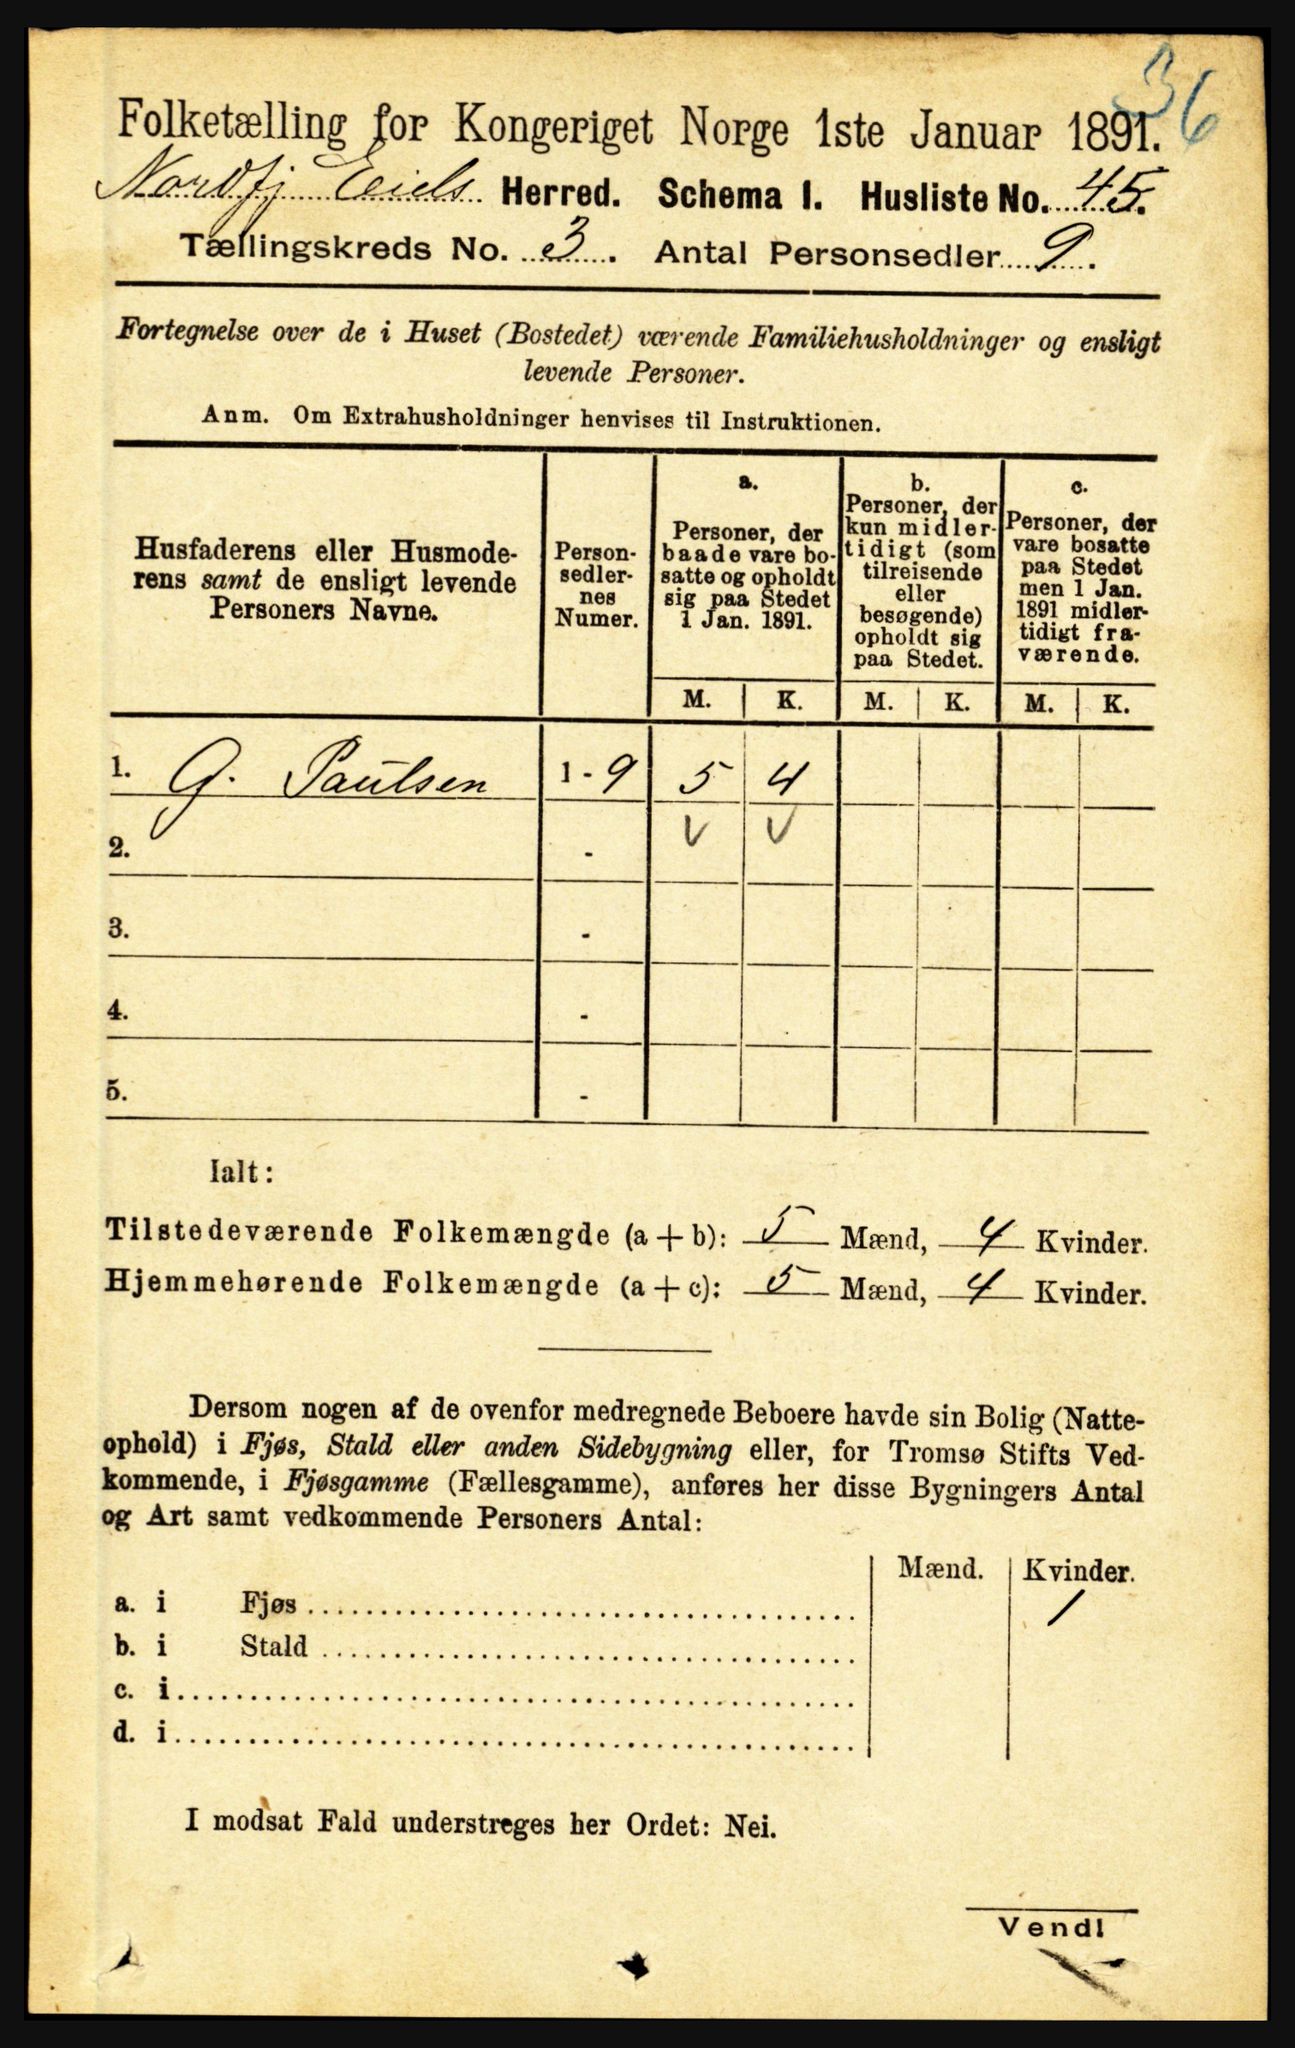 36
Folketælling for Kongeriget Norge 1ste Januar 1891.
Nordfj. Eids Herred. Schema I. Husliste No. 45.
Tællingskreds No. 3. Antal Personsedler 9.
Fortegnelse over de i Huset (Bostedet) værende Familiehusholdninger og ensligt
levende Personer.
Anm. Om Extrahusholdninger henvises til Instruktionen.
Husfaderens eller Husmode-
rens samt de ensligt levende
Personers Navne.
Person-
sedler-
nes
Numer.
a.
Personer, der
baade vare bo-
satte og opholdt
sig paa Stedet
1 Jan. 1891.
b.
Personer, der
kun midler-
tidigt (som
tilreisende
eller
besøgende)
opholdt sig
paa Stedet.
c.
Personer, der
vare bosatte
paa Stedet
men 1 Jan.
1891 midler-
tidigt fra-
værende.
M. K. M. K. M. K.
1. G. Paulsen 1 - 9 5 4
2. - V V
3. -
4. -
5. -
Ialt:
Tilstedeværende Folkemængde (a + b): 5 Mænd, 4 Kvinder.
Hjemmehørende Folkemængde (a + c): 5 Mænd, 4 Kvinder.
Dersom nogen af de ovenfor medregnede Beboere havde sin Bolig (Natte-
ophold) i Fjøs, Stald eller anden Sidebygning eller, for Tromsø Stifts Ved-
kommende, i Fjøsgamme (Fællesgamme), anføres her disse Bygningers Antal
og Art samt vedkommende Personers Antal:
Mænd. Kvinder.
a. i Fjøs 1
b. i Stald
c. i
d. i
I modsat Fald understreges her Ordet: Nei.
Vend!